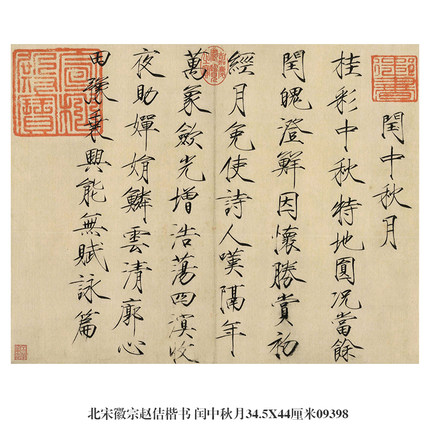 閏中秋月
桂彩中秋特地圓況當餘
閏魄澄鮮因懷勝賞初
經月免使詩人嘆隔年
萬象斂光增浩蕩四溟收
夜助嬋娟鱗雲清廓心
田豫乘興能無賦詠篇
北宋徽宗赵佶楷书 闰中秋月34.5X44厘米09398